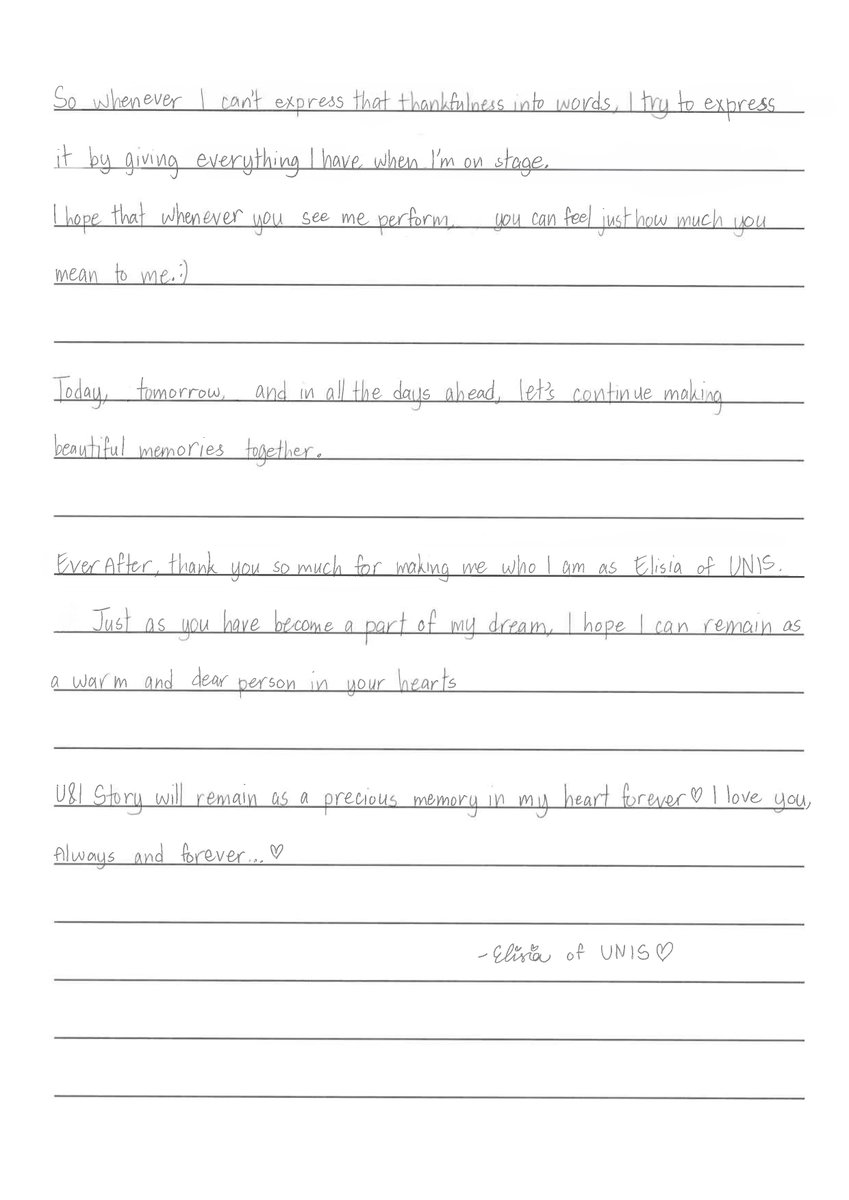 So whenever I can't express that thankfulness into words, I try to express
it by giving everything I have when I'm on stage.
I hope that whenever you see me perform, you can feel just how much you
mean to me.:)
Today, tomorrow, and in all the days ahead, let's continue making
beautiful memories together.
EverAfter, thank you so much for making me who I am as Elisia of UNIS.
Just as you have become a part of my dream, I hope I can remain as
a warm and dear person in your hearts
U&I Story will remain as a precious memory in my heart forever♡ I love you,
Always and forever...♡
-Elisia of UNIS♡